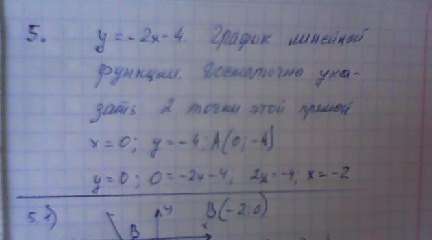 5. y = -2x-4. График линейной
функции. Достаточно ука-
зать 2 точки этой прямой
x=0; y=-4; A(0;-4)
y=0; 0=-2x-4, 2x=-4; x=-2
5. B(-2;0)
y
B
x